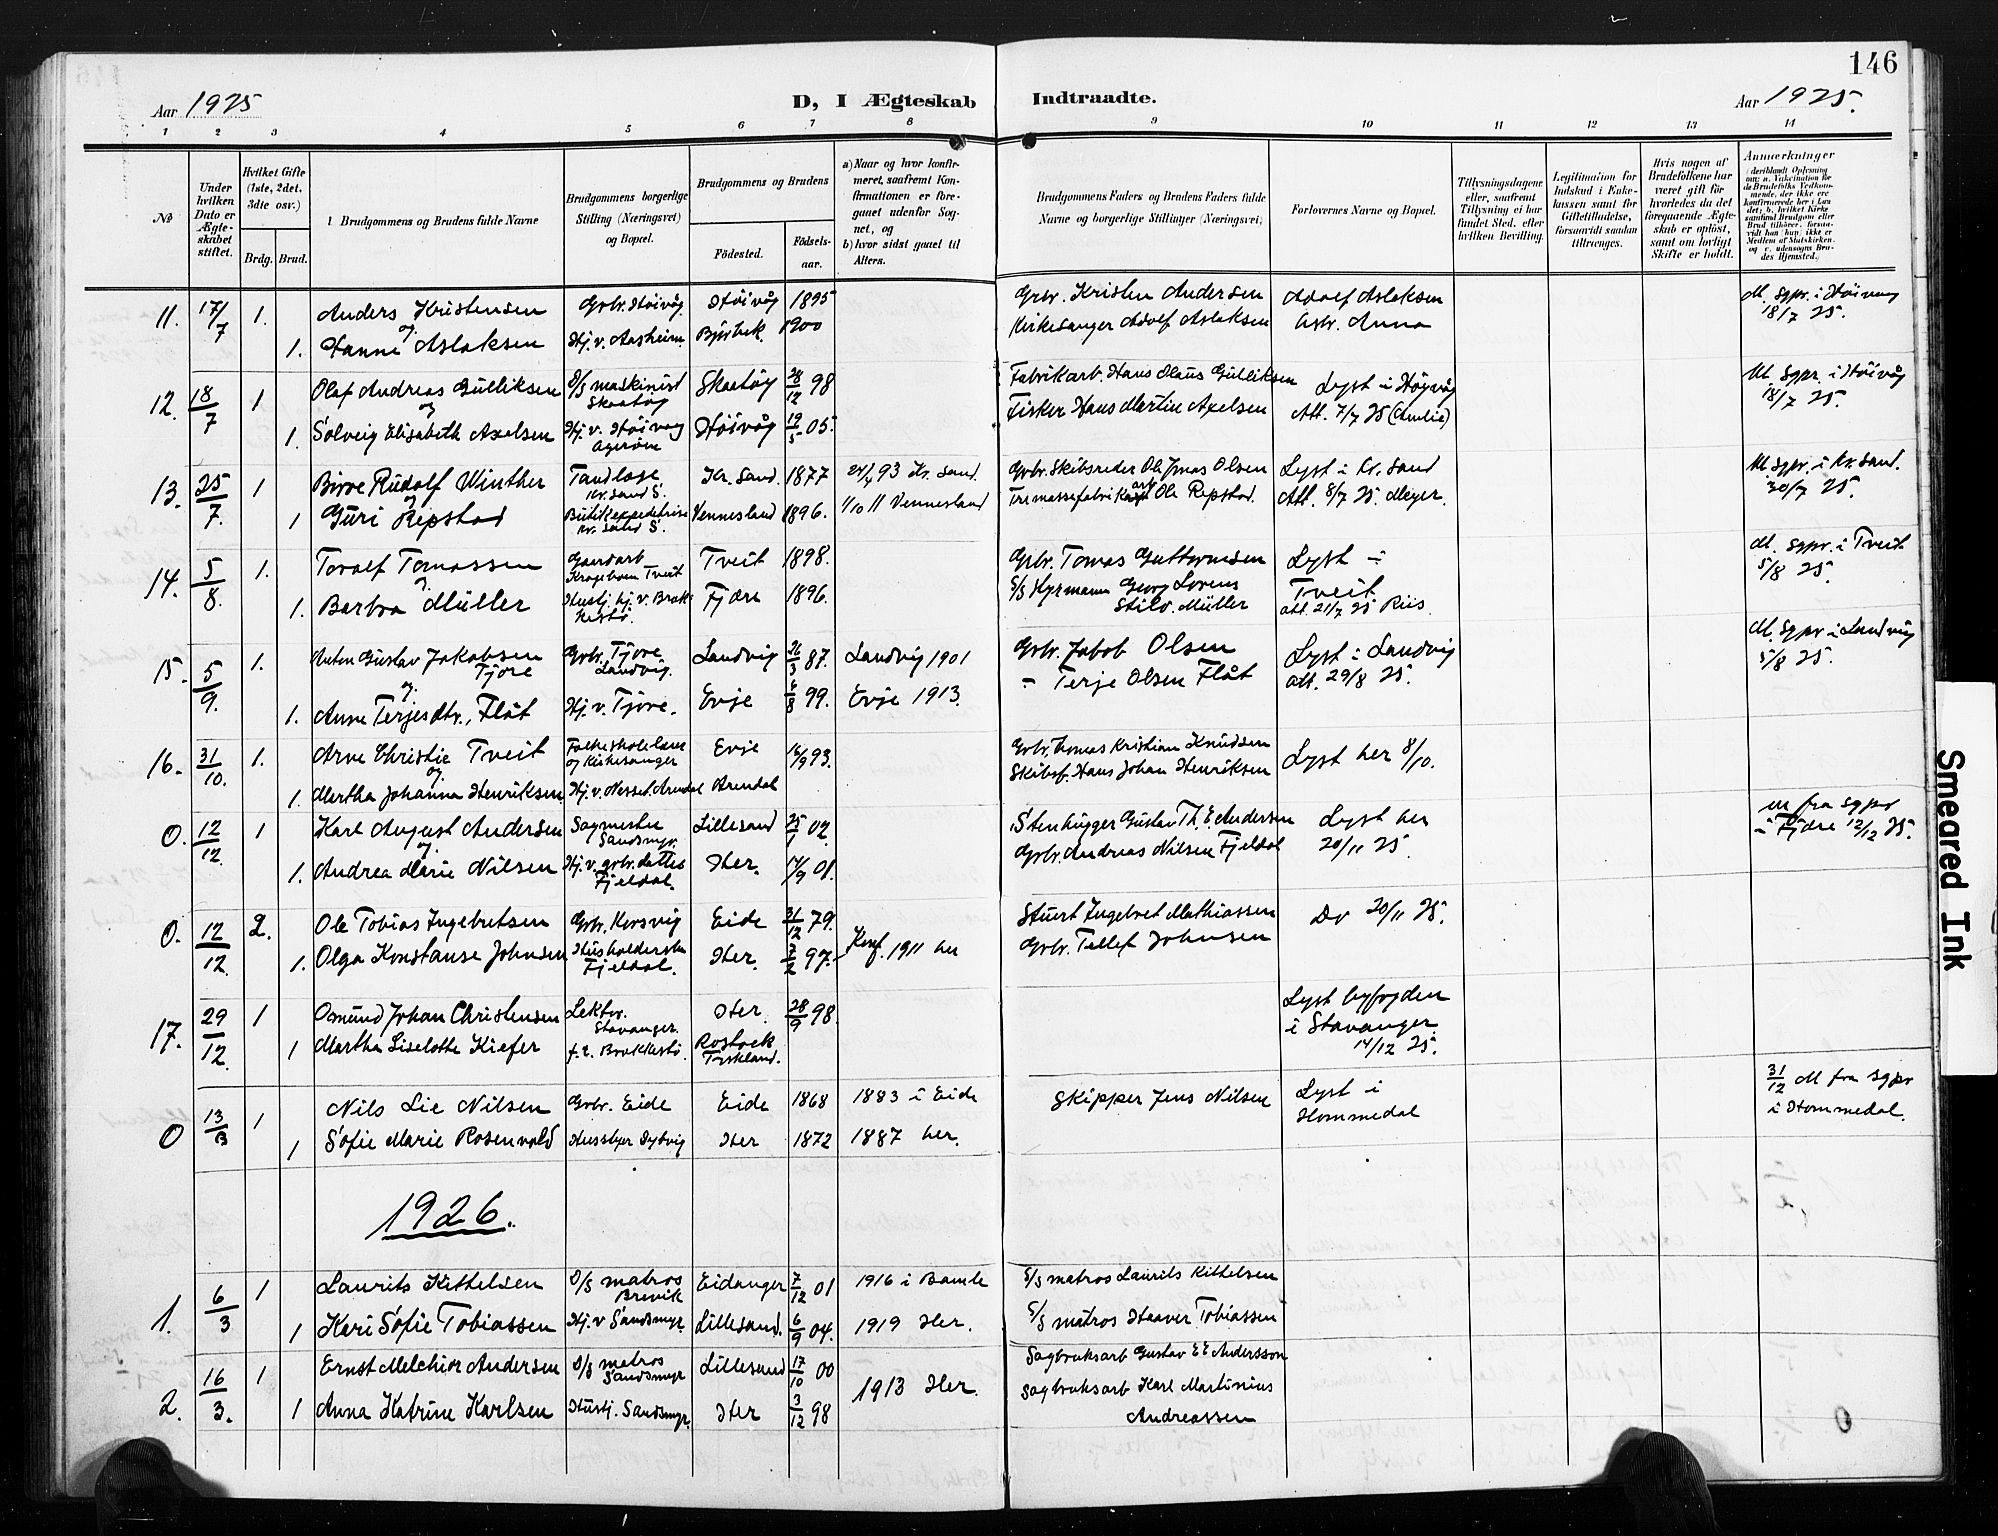 146
Aar 1925
D, I Ægteskab Indtraadte.
Aar 1925.
1 2 3 4 5 6 7 8 9 10 11 12 13 14
No
Under hvilken Dato er Ægteskabet stiftet.
Hvilket Gifte (1ste, 2det, 3die osv.)
Brdg. Brud.
1. Brudgommens og Brudens fulde Navne
Brudgommens borgerlige Stilling (Næringsvei) og Bopæl.
Brudgommens og Brudens
Födested.
Födselsaar.
a) Naar og hvor konfirmeret, saafremt Konfirmationen er foregaaet udenfor Sognet, og
b) hvor sidst gaaet til Alters.
Brudgommens Faders og Brudens Faders fulde Navne og borgerlige Stillinger (Næringsvei)
Forlovernes Navne og Bopæl.
Tillysningsdagene eller, saafremt Tillysning ei har fundet Sted, efter hvilken Bevilling.
Legitimation for Indskud i Enkekassen samt for Giftetilladelse, forsaavidt saadan tiltrænges.
Hvis nogen af Brudefolkene har været gift för hvorledes da det foregaaende Ægteskab er oplöst, samt om lovligt Skifte er holdt.
Anmerkninger
11. 17/7 1. Anders Kristensen Grbr. Höivåg Höivåg 1895 Grbr. Kristen Andersen Adolf Aslaksen M. sgpr. i Höivaag
og
1. Hanne Aslaksen Hj. v. Aasheim Birkeb. 1900 Kirkesanger Adolf Aslaksen Anna 18/7 25.
12. 18/7 1 Olaf Andreas Gulliksen D/S maskinist Skaatöy Skaatöy 28/12 98 Fabrikarb. Hans Olaus Gulliksen Lyst i Högvåg M sgpr. i Höivåg
og
1. Solveig Elisabeth Axelsen Hj. v. Höivaag Ageröen Höivåg 19/5 05. Fisker Hans Martin Axelsen Att. 7/7 25 (Amlie) 18/7 25.
13. 25/7. 1 Birre Rudolf Winther Tandlæge Kr. sand S. Kr. Sand. 1877 24/4 93 Kr. Sand. Grbr. Skibsreder Ole Jonas Olsen Lyst i Kr. Sand M sgpr. i Kr. sand.
og
1 Guri Repstad Butikexpeditrise Kr. sand S. Vennesland 1896. 1/10 11 Vennesland Tremassefabrikarb. Ole Repstad. Att. 8/7 25 Meyer. 30/7 25.
14. 5/8. 1. Toralf Tomassen Gaardarb Krageboen Tveit Tveit 1898. Grbr. Tomas Guttormsen Lyst i M. sgpr. i Tveit
og
1. Barbra Müller Hustj. hj. v. Brekkestö. Fjære 1896. S/S Georg Lorens Müller Tveit att. 21/7 25 Riis. 5/8 25.
15. 5/9. 1. Anton Gustav Jakobsen Tjore Grbr. Tjore Landvig. Landvig 26/3 87. Landvig 1901 Grbr. Jakob Olsen Lyst i Landvig M. Sgpr i Landvig
og
1. Anne Terjesdtr. Flåt Hj. v. Tjore. Evje 6/8 99. Evje 1913. " Terje Olsen Flåt att. 29/8 25. 5/8 25.
16. 31/10. 1. Arne Christie Tveit Folkeskolelærer og Kirkesanger Evje 16/9 93. Grbr. Thomas Kristian Knudsen Lyst her 8/10.
og
1. Martha Johanna Henriksen Hj. v. Nesset Arendal Arendal Skibsf. Hans Johan Henriksen
0. 12/12. 1 Karl August Andersen Sagmester Sandsmyr. Lillesand 25/1 02. Stenhugger Gustav Th. E. Andersen Lyst her m fra sgpr
og
1. Andrea Marie Nilsen Hj. v. grbr. dettes Fjeldal. Her. 14/9 01. Grbr. Andreas Nilsen Fjeldal 20/11 25. i Fjære 12/12 25.
0. 12/12. 2. Ole Tobias Ingebretsen Grbr. Korsvig Eide 31/12 79. Stuert Ingebret Mathiassen Do 20/11 25.
1. Olga Konstanse Johnsen Husholderske Fjeldal. Her. 7/2 97. Konf. 1911 her Grbr. Tellef Johnsen
17. 29/12. 1 Osmund Johan Christensen Lektor. Stavanger. Her. 28/9 98. Lyst byfogden i Stavanger
1 Martha Liselotte Kiefer f. t. Brekkestö. Rostock Tyskland. 14/12 25.
0 13/ 1 Nils Lie Nilsen Grbr. Eide Eide 1868 1883 i Eide Skipper Jens Nilsen Lyst i Hommedal 31/12 M fra sgpr i Hommedal.
1 Sofie Marie Rosenvold Husbyer Dybvig Her 1872 1887 her.
1926.
1. 6/3 1 Laurits Kittelsen D/S matros Brevik Eidanger 7/12 01 1916 i Bamle S/S matros Laurits Kittelsen
1 Kari Sofie Tobiassen Hj. v Sandsmyr. Lillesand. 6/9 04. 1919 Her. S/S matros Haaver Tobiassen
2. 16/3. 1 Ernst Melchior Andersen D/S matros Sandsmyr Lillesand 17/10 00 Sagbruksarb Gustav E E Andersson
1 Anna Katrine Karlsen Hustj. Sandsmyr. Her 3/12 98 1913 Her. Sagbruksarb Karl Martinius Andreassen
0
Smeared Ink